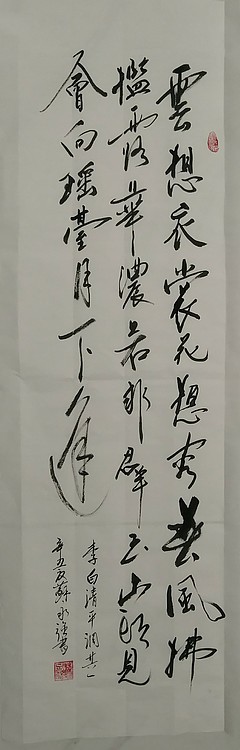 雲想衣裳花想容春風拂
檻露華濃若非群玉山頭見
會向瑤臺月下逢
李白清平調其一
辛丑夏蘇永強書